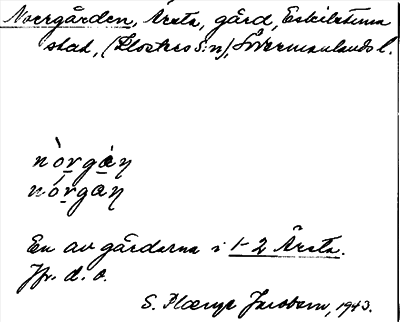 Norrgården, Årsta, gård, Eskilstuna
stad, (Klosters s:n), Södermanlands l.
nòrgàɳ
nórgaɳ
En av gårdarna i 1-2 Årsta.
Jfr. d. o.
S. Jacobson, 1943.